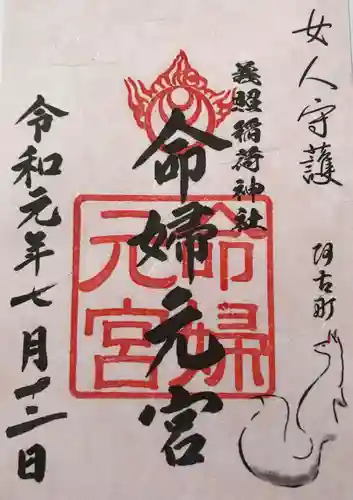 女人守護
阿古町
義照稲荷神社
命婦元宮
命婦元宮
令和元年七月十二日